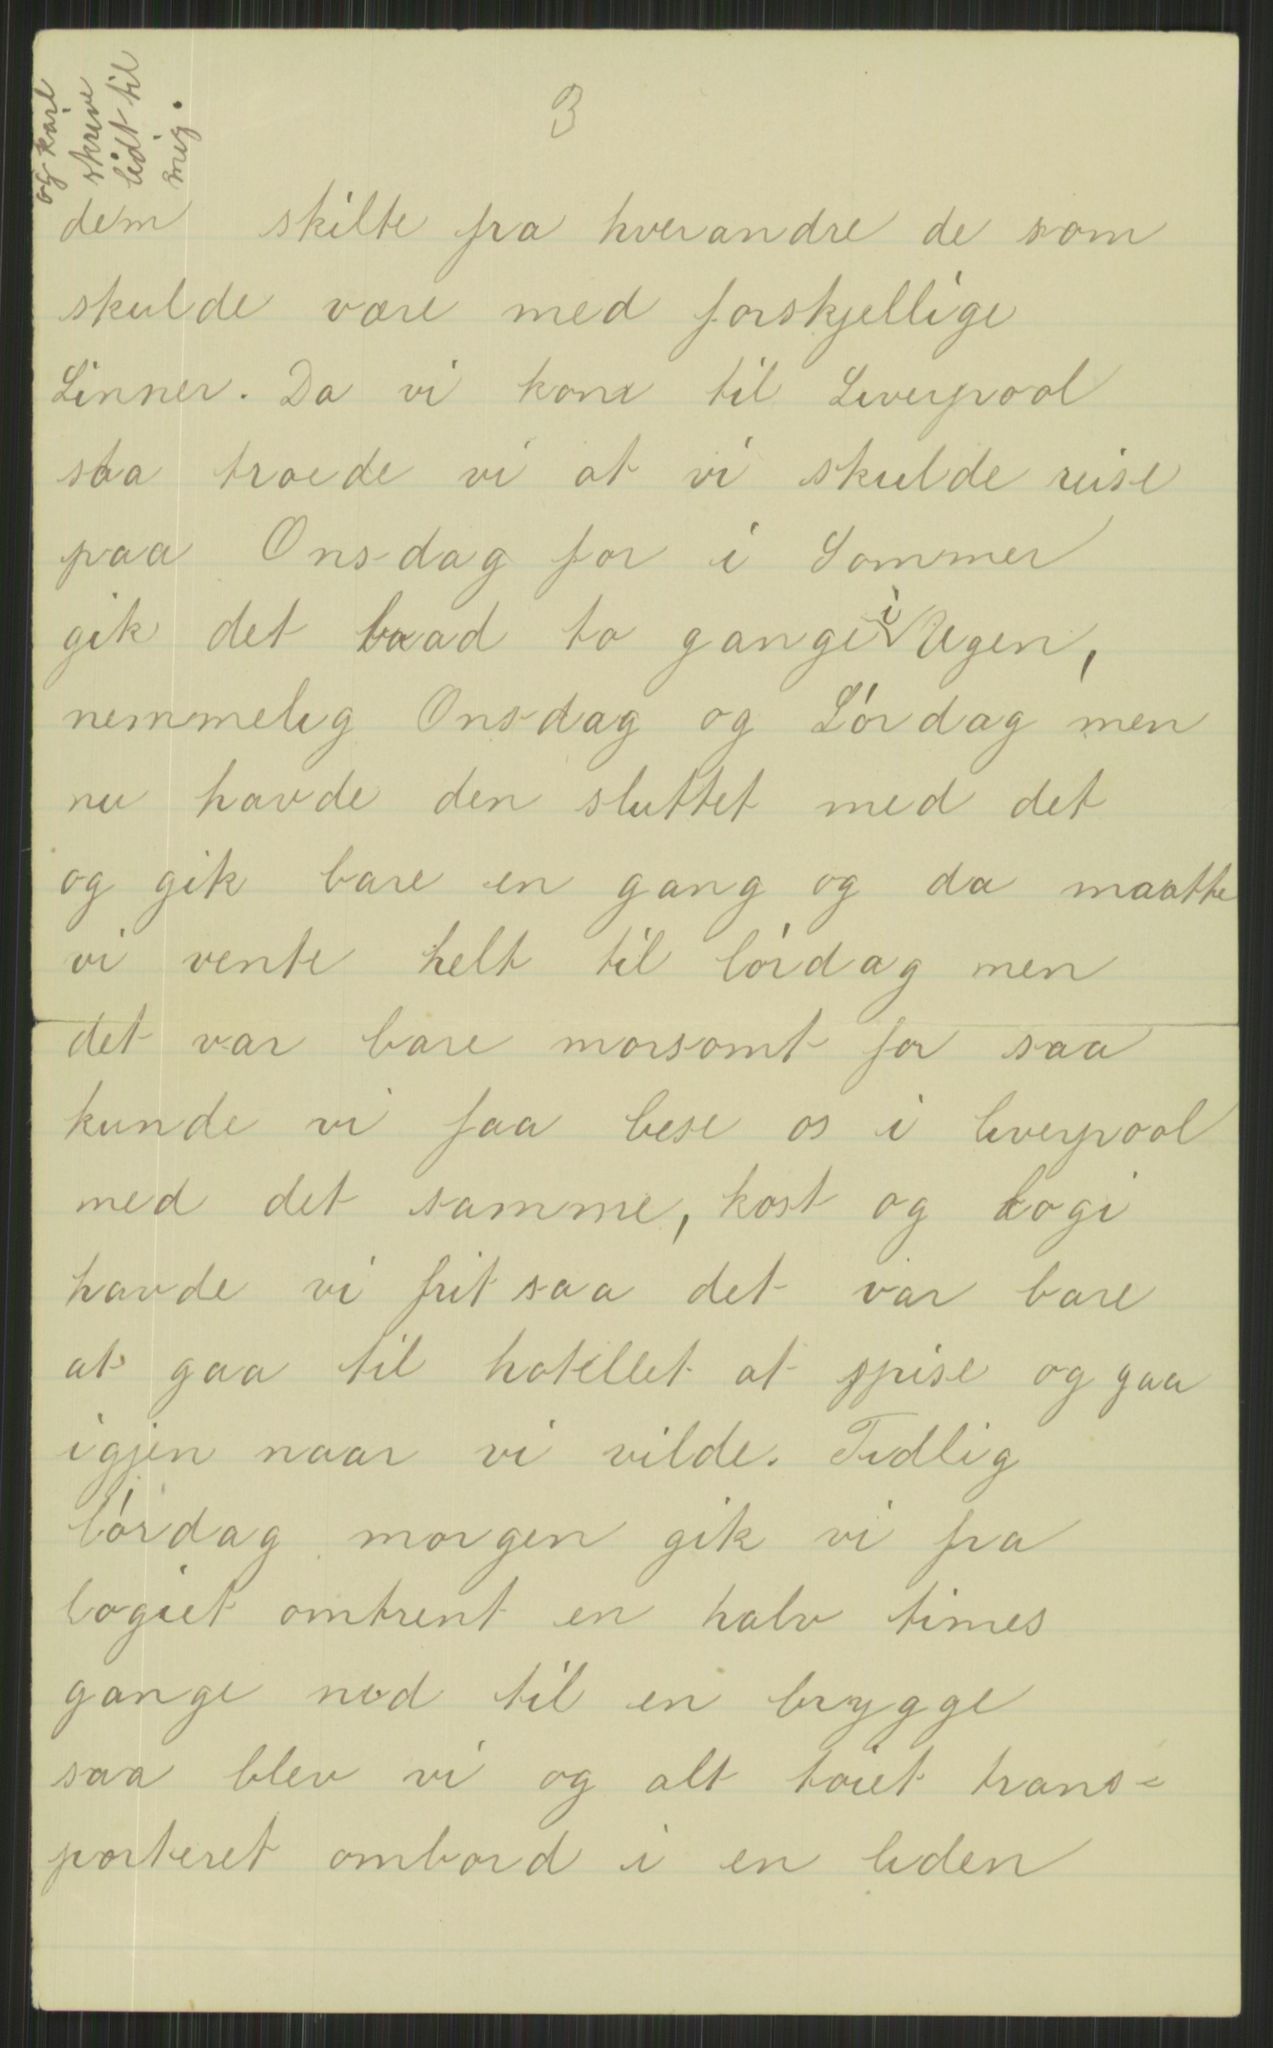 og Karl
skrive
lidt til
mig.
3
dem skilte fra hverandre de som
skulde være med forskjellige
Linner. Da vi kom til Liverpool
saa troede vi at vi skulde reise
paa Onsdag for i Sommer
gik det baad to gange i Ugen,
nemmelig Onsdag og Lördag men
nu havde den sluttet med det
og gik bare en gang og da maatte
vi vente helt til lördag men
det var bare morsomt for saa
kunde vi faa bese os i liverpool
med det samme, kost og Logi
havde vi frit saa det var bare
at gaa til hotellet at spise og gaa
igjen naar vi vilde. Tidlig
lördag morgen gik vi fra
logiet omtrent en halv times
gange ned til en brygge
saa blev vi og alt töiet trans=
porteret ombord i en liden